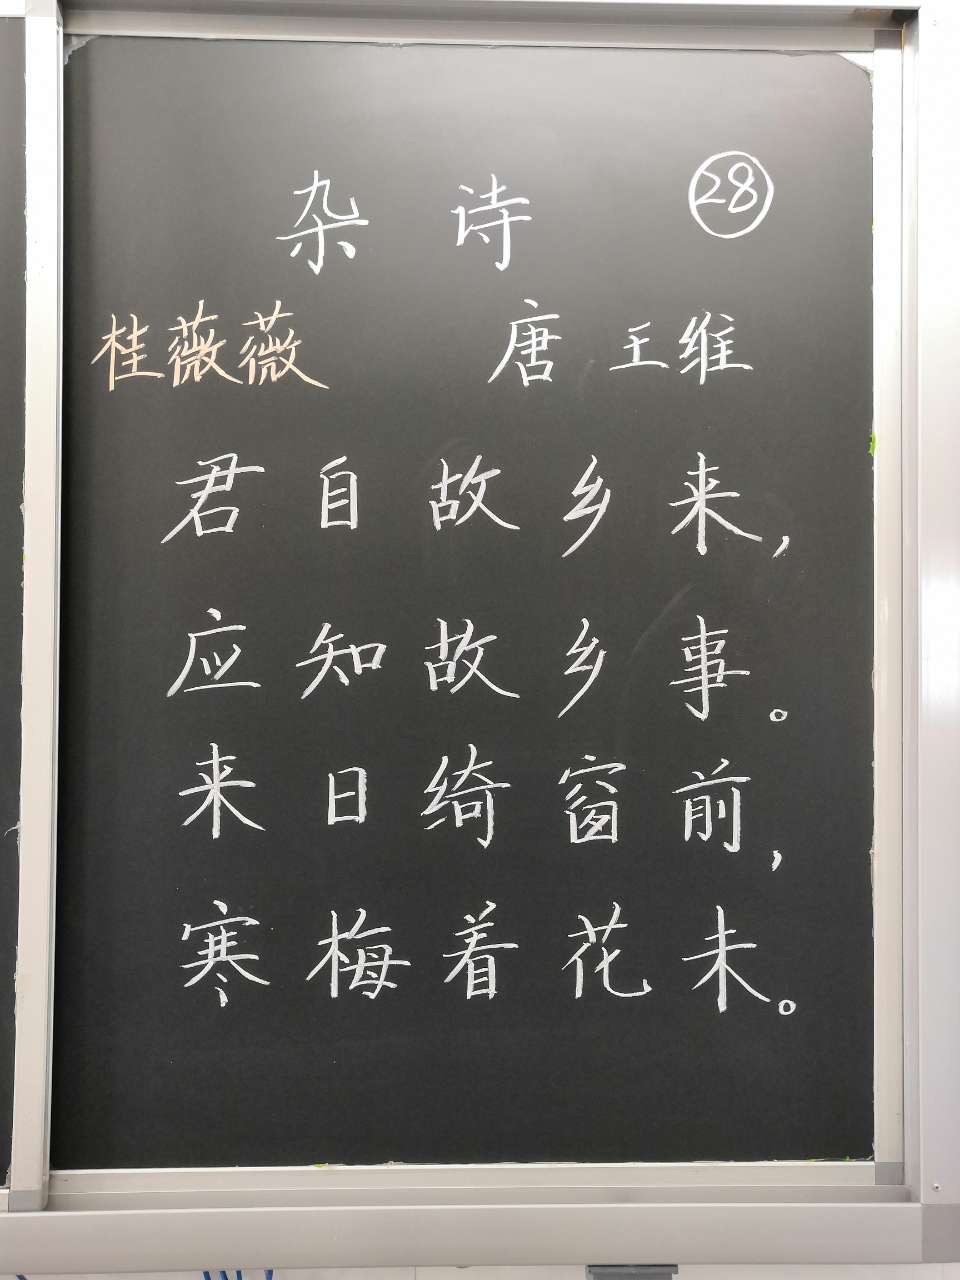 杂诗 28
桂薇薇 唐 王维
君自故乡来，
应知故乡事。
来日绮窗前，
寒梅着花未。